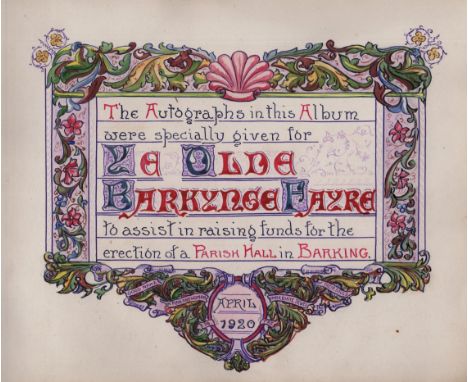 The Autographs in this Album
were specially given for
Ye Olde
Barkynge Fayre
to assist in raising funds for the
erection of a Parish Hall in Barking.
April
1920